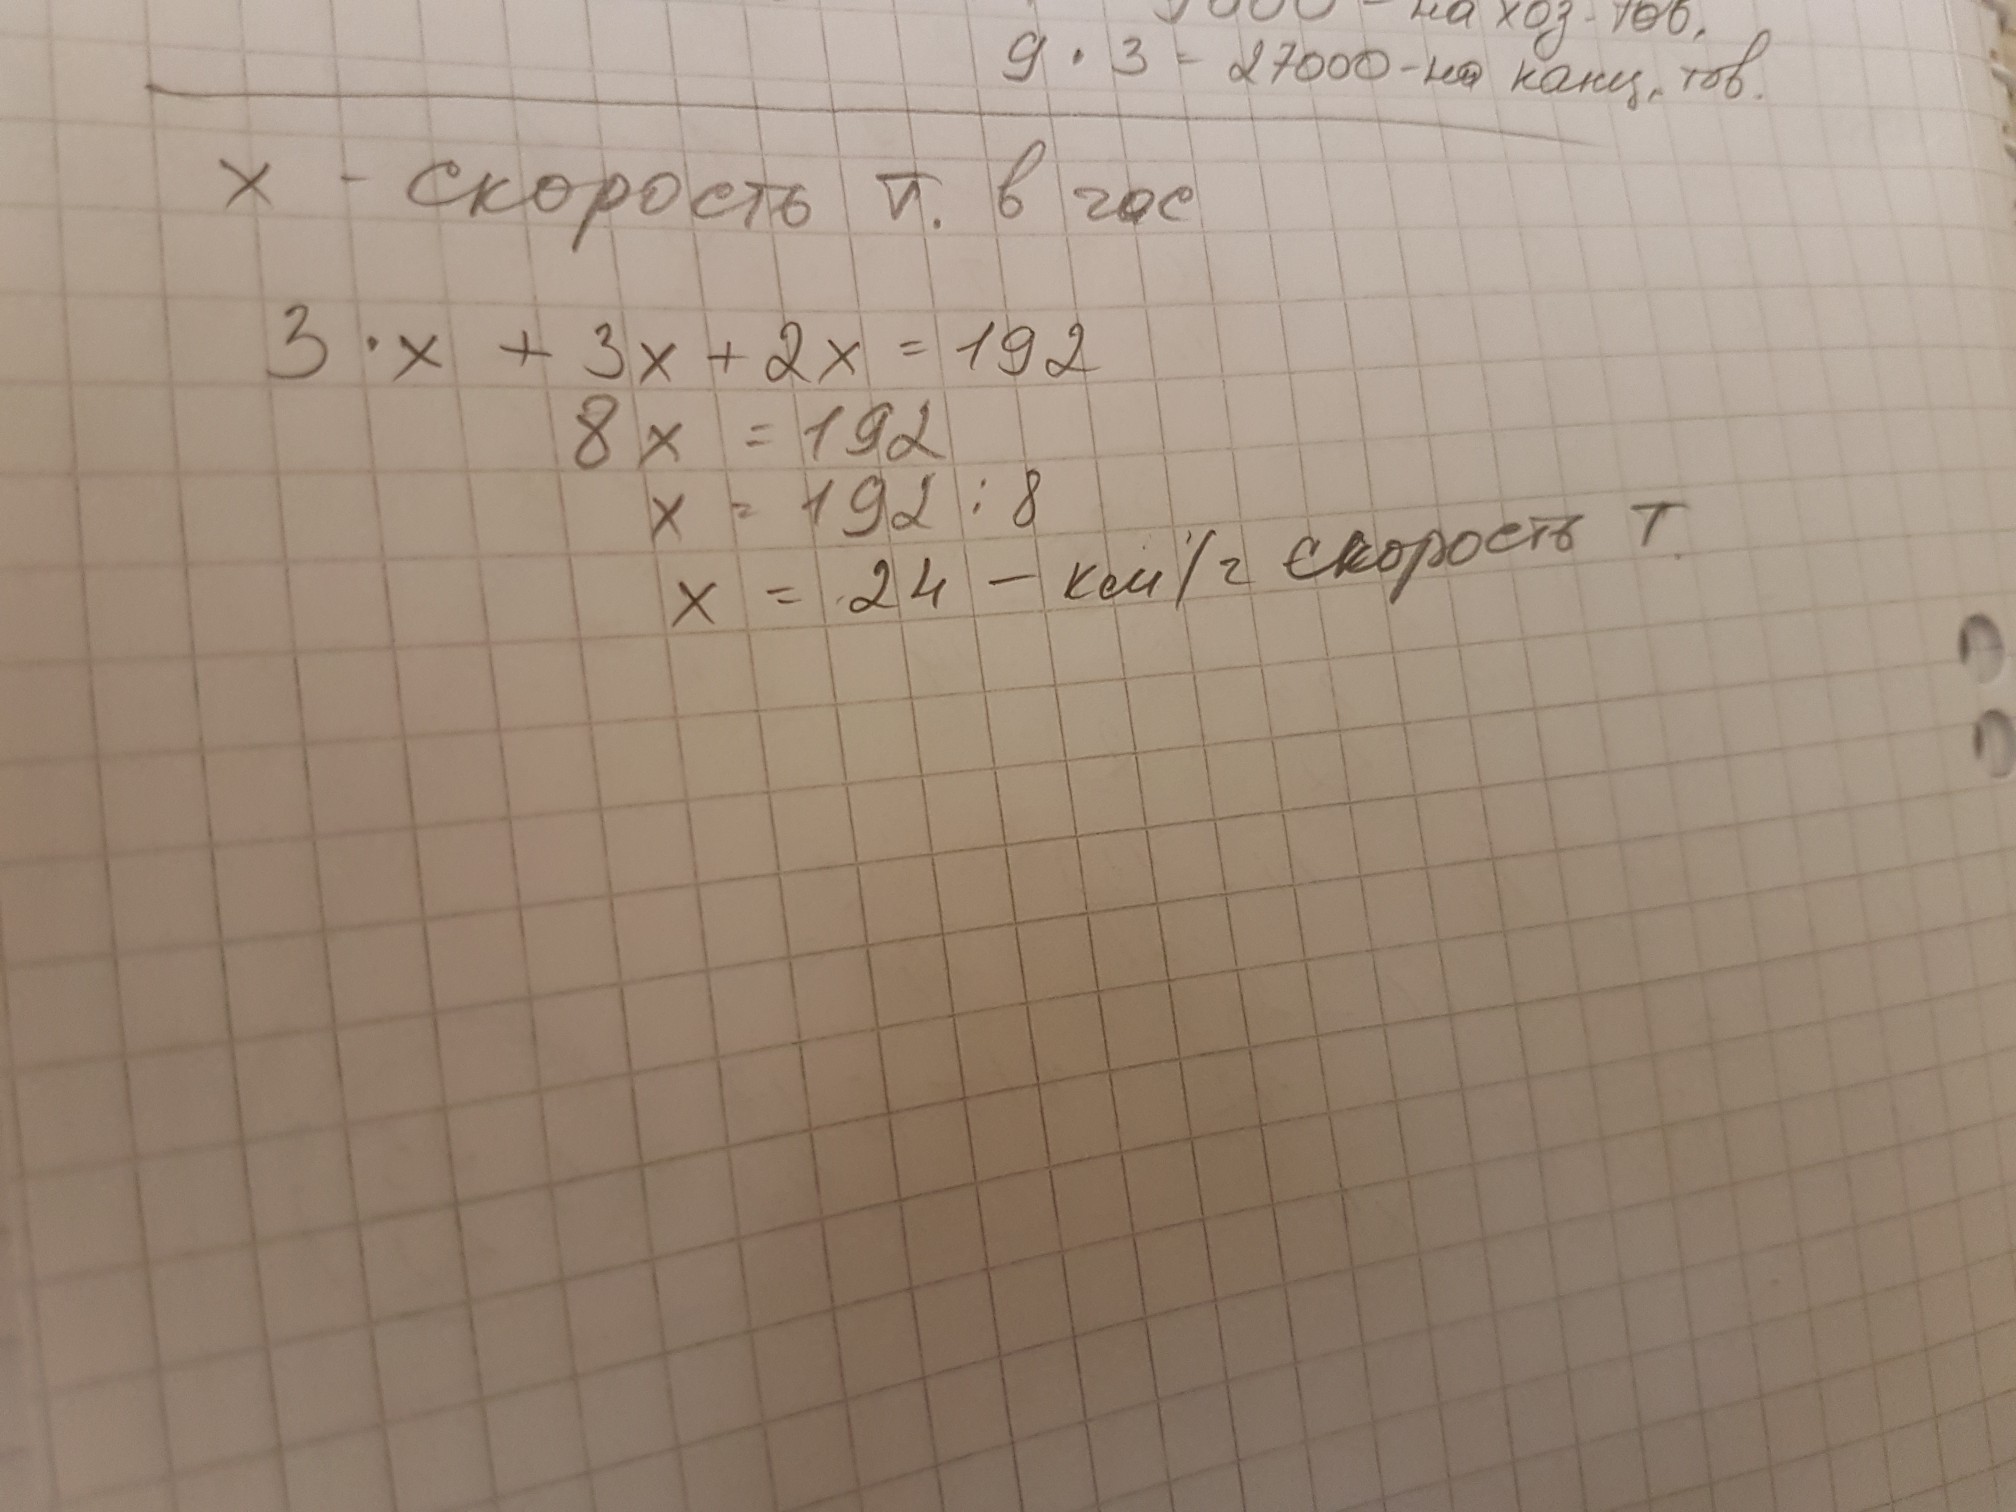 9000 - на хоз. тов.
9 · 3 = 27000 - на канц. тов.
х - скорость т. в час
3 · х + 3х + 2х = 192
8х = 192
х = 192 : 8
х = 24 - км/ч скорость т.